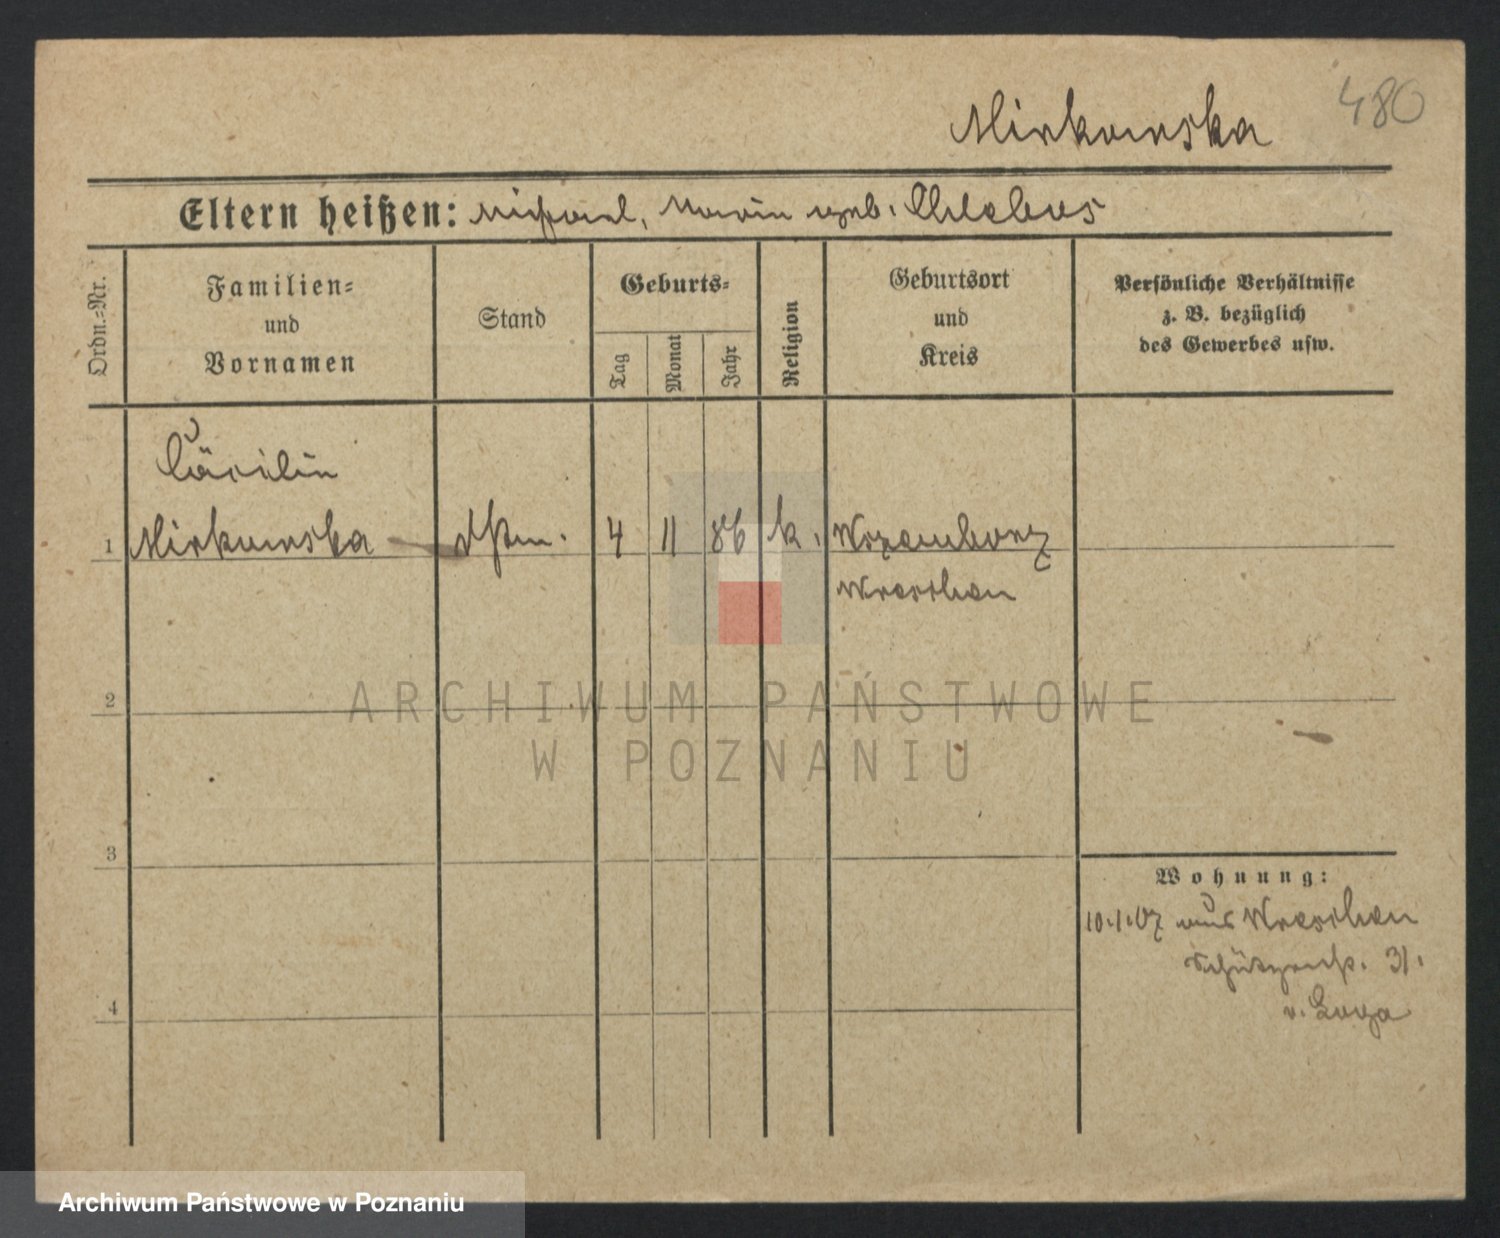 480
Mirkowska
Eltern heißen: Michael, Marie geb. Chlebus
Ordn.-Nr.
Familien-
und
Vornamen
Stand
Geburts-
Tag
Monat
Jahr
Religion
Geburtsort
und
Kreis
Persönliche Verhältnisse
z. B. bezüglich
des Gewerbes usw.
Cäcilie
1 Mirkowska Dstm. 4 11 86 k.
Wreschen
2
ARCHIWUM PAŃSTWOWE
W POZNANIU
3
Wohnung:
10.1.07 aus Wreschen
Schützenstr. 31.
4
Archiwum Państwowe w Poznaniu